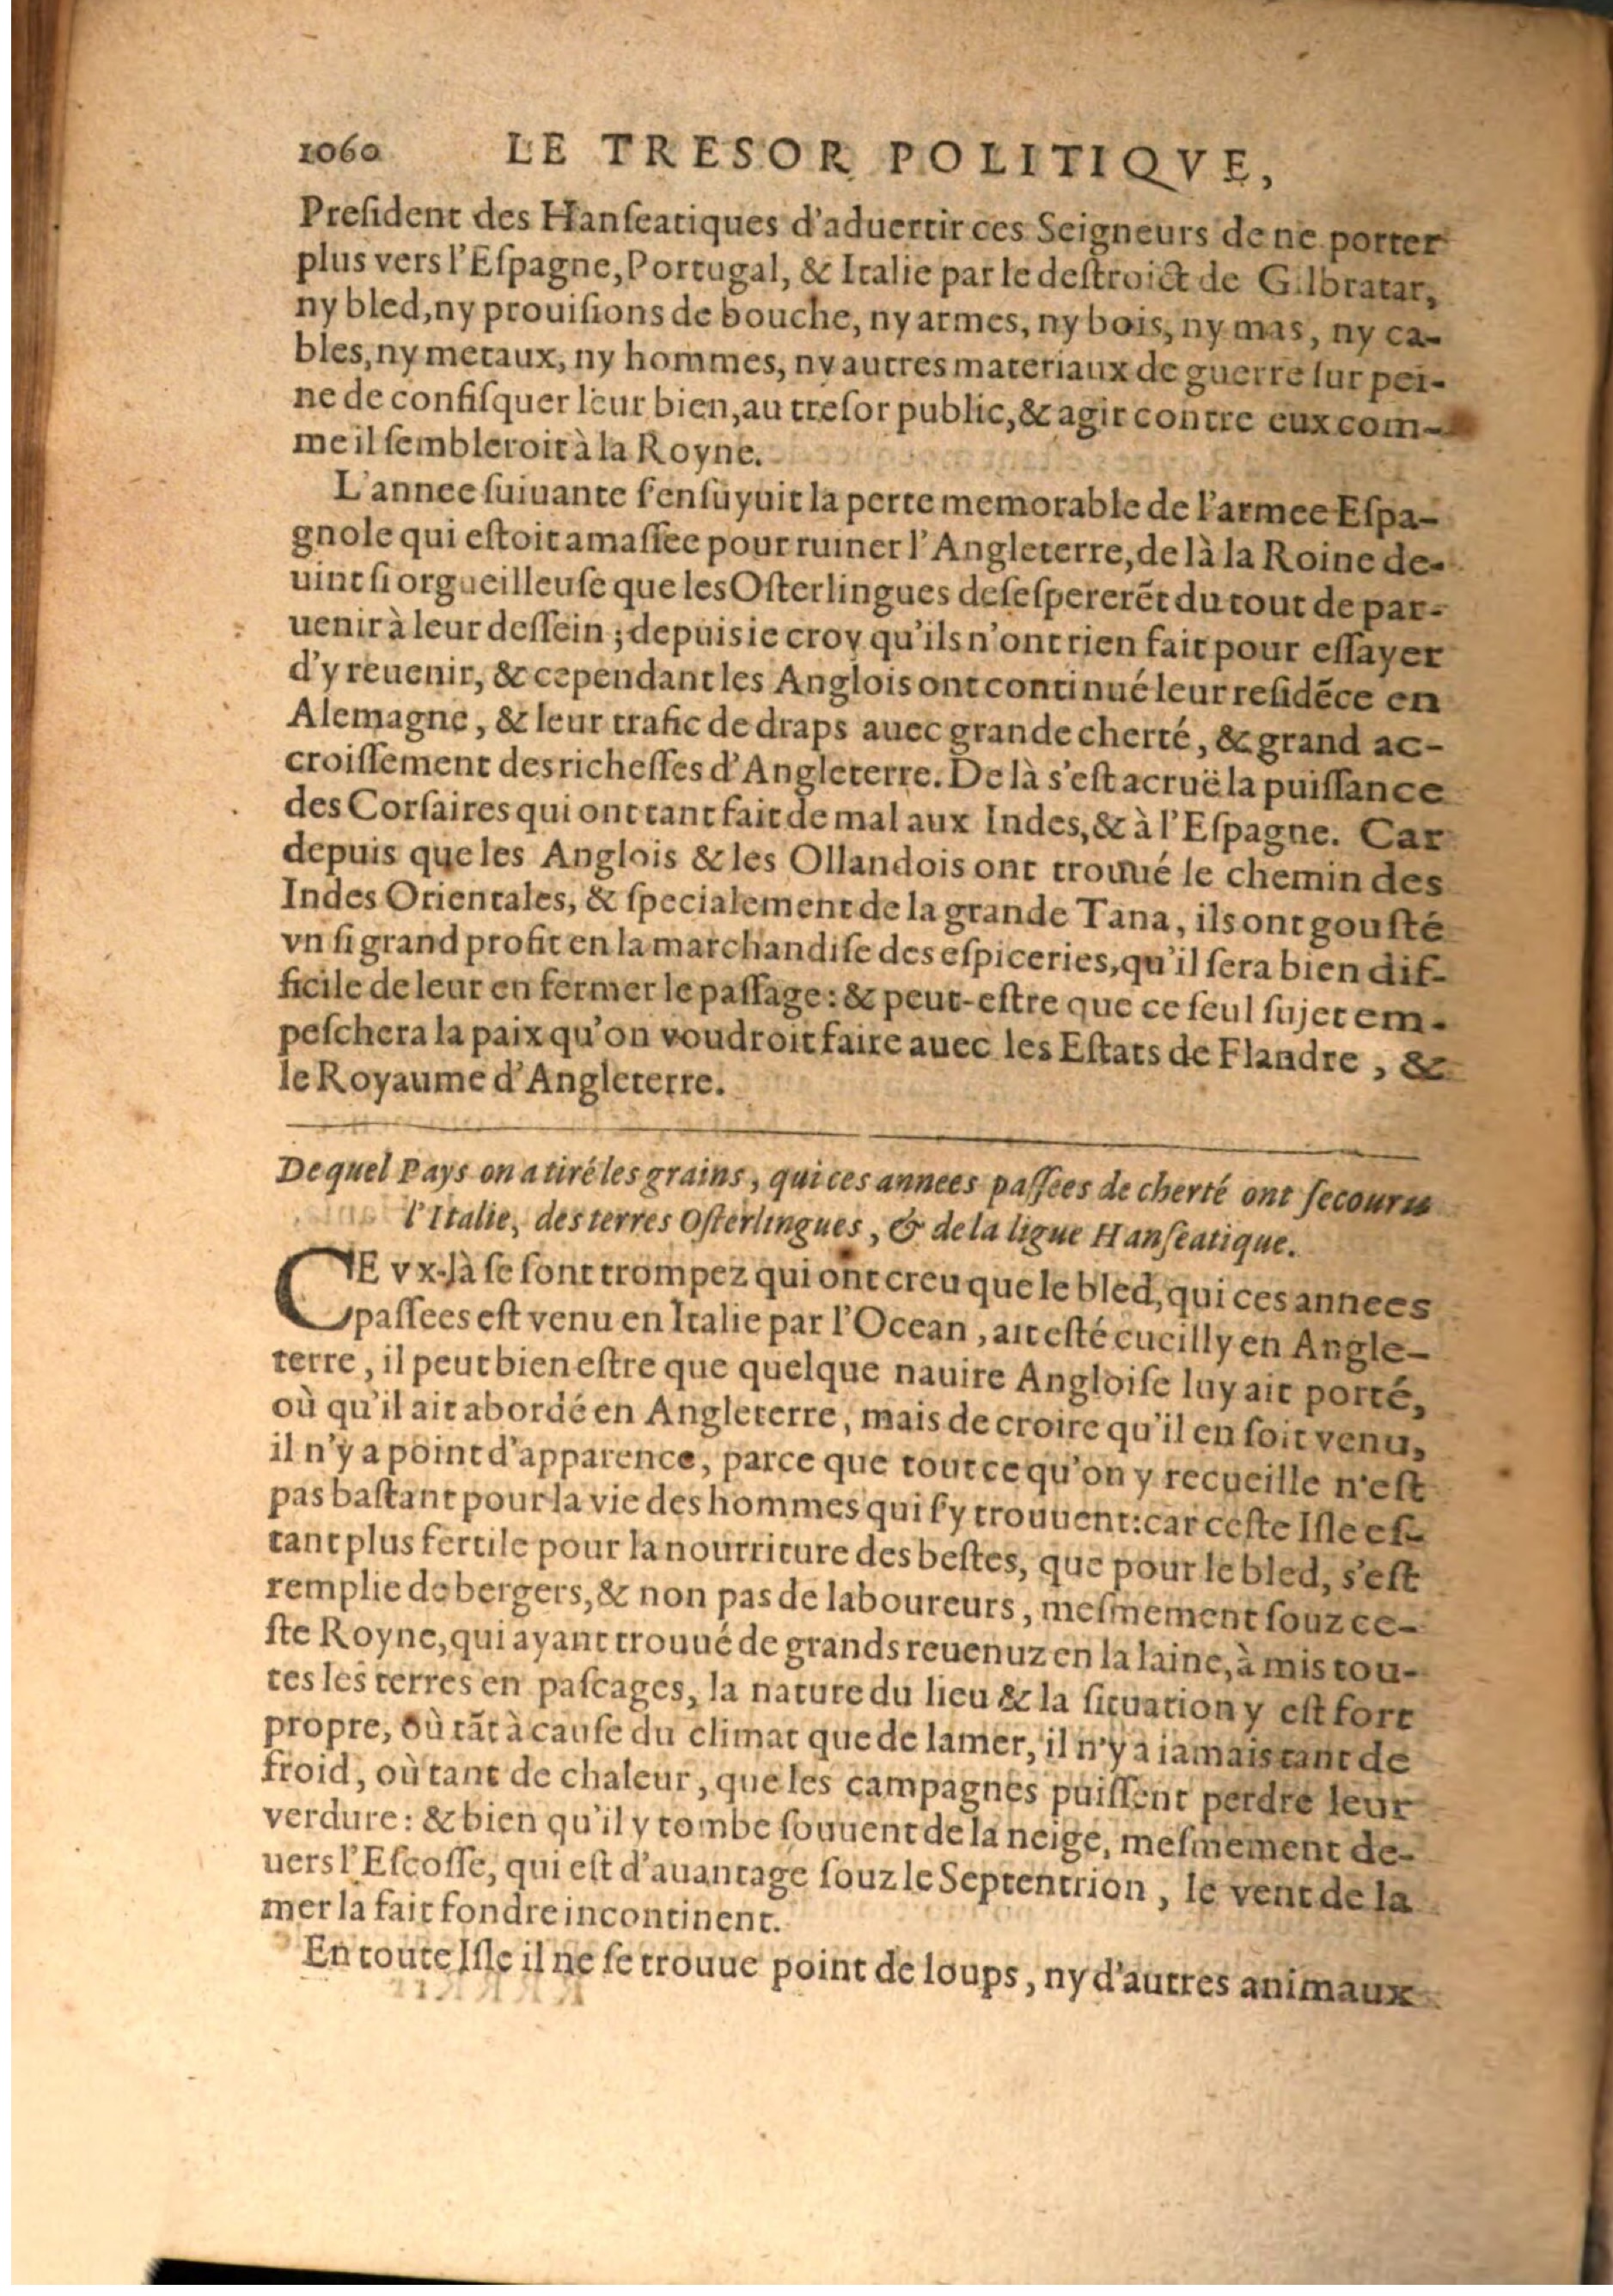 1060 LE TRESOR POLITIQVE,
Preſident des Hanſeatiques d'aduertir ces Seigneurs de ne porter
plus vers l'Eſpagne, Portugal, & Italie par le deſtroict de Gilbratar,
ny bled, ny prouiſions de bouche, ny armes, ny bois, ny mas, ny ca-
bles, ny metaux, ny hommes, ny autres materiaux de guerre ſur pei-
ne de confiſquer leur bien, au treſor public, & agir contre eux com-
me il ſembleroit à la Royne.
L'annee ſuiuante ſ'enſuyuit la perte memorable de l'armee Eſpa-
gnole qui eſtoit amaſſee pour ruiner l'Angleterre, de là la Roine de-
uint ſi orgueilleuſe que les Oſterlingues deſeſpererẽt du tout de par-
uenir à leur deſſein ; depuis ie croy qu'ils n'ont rien fait pour eſſayer
d'y reuenir, & cependant les Anglois ont continué leur reſidẽce en
Alemagne, & leur trafic de draps auec grande cherté, & grand ac-
croiſſement des richeſſes d'Angleterre. De là s'eſt acruë la puiſſance
des Corſaires qui ont tant fait de mal aux Indes, & à l'Eſpagne. Car
depuis que les Anglois & les Ollandois ont trouué le chemin des
Indes Orientales, & ſpecialement de la grande Tana, ils ont gouſté
vn ſi grand profit en la marchandiſe des eſpiceries, qu'il ſera bien dif-
ficile de leur en fermer le paſſage : & peut-eſtre que ce ſeul ſujet em-
peſchera la paix qu'on voudroit faire auec les Eſtats de Flandre, &
le Royaume d'Angleterre.
De quel Pays on a tiré les grains, qui ces annees paſſees de cherté ont ſecouru
l'Italie, des terres Oſterlingues, & de la ligue Hanſeatique.
CEVX-là ſe ſont trompez qui ont creu que le bled, qui ces annees
paſſees eſt venu en Italie par l'Ocean, ait eſté cueilly en Angle-
terre, il peut bien eſtre que quelque nauire Angloiſe luy ait porté,
où qu'il ait abordé en Angleterre, mais de croire qu'il en ſoit venu,
il n'y a point d'apparence, parce que tout ce qu'on y recueille n'eſt
pas baſtant pour la vie des hommes qui ſ'y trouuent : car ceſte Iſle eſ-
tant plus fertile pour la nourriture des beſtes, que pour le bled, s'eſt
remplie de bergers, & non pas de laboureurs, meſmement ſouz ce-
ſte Royne, qui ayant trouué de grands reuenuz en la laine, à mis tou-
tes les terres en paſcages, la nature du lieu & la ſituation y eſt fort
propre, où tãt à cauſe du climat que de la mer, il n'y a iamais tant de
froid, où tant de chaleur, que les campagnes puiſſent perdre leur
verdure : & bien qu'il y tombe ſouuent de la neige, meſmement de-
uers l'Eſcoſſe, qui eſt d'auantage ſouz le Septentrion, le vent de la
mer la fait fondre incontinent.
En toute Iſle il ne ſe trouue point de loups, ny d'autres animaux